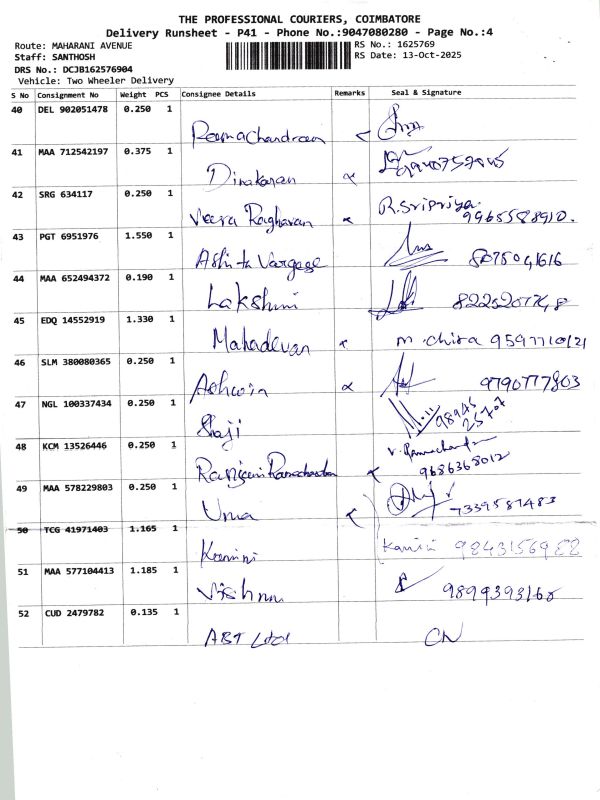 THE PROFESSIONAL COURIERS, COIMBATORE
Delivery Runsheet - P41 - Phone No.:9047080280 - Page No.:4
Route: MAHARANI AVENUE RS No.: 1625769
Staff: SANTHOSH RS Date: 13-Oct-2025
DRS No.: DCJB162576904
Vehicle: Two Wheeler Delivery
S No Consignment No Weight PCS Consignee Details Remarks Seal & Signature
40 DEL 902051478 0.250 1
Ramachandran
41 MAA 712542197 0.375 1
Dinakaran
42 SRG 634117 0.250 1
Veera Raghavan R.Sripriya.
9965588910.
43 PGT 6951976 1.550 1
Ashita Vargese 8075041616
44 MAA 652494372 0.190 1
Lakshmi
45 EDQ 14552919 1.330 1
Mahadevan m.chitra 9597710121
46 SLM 380080365 0.250 1
Ashwin 9790777803
47 NGL 100337434 0.250 1
Shaji 98945 25707
48 KCM 13526446 0.250 1
Ranjani Ramachandran 9686368012
49 MAA 578229803 0.250 1
Uma 7339587483
50 TCG 41971403 1.165 1
Kamini
51 MAA 577104413 1.185 1
Vishnu 9899393168
52 CUD 2479782 0.135 1
ABT Ltd CN